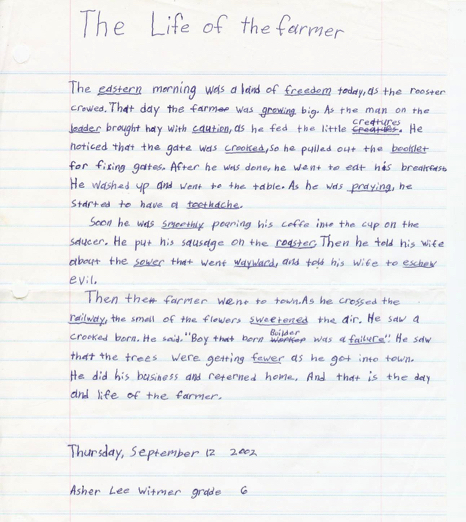 The Life of the farmer
The eastern morning was a land of freedom today, as the rooster
crowed. That day the farmer was growing big. As the man on the
leader brought hay with caution, as he fed the little creatures. He
noticed that the gate was crooked, so he pulled out the booklet
for fixing gates. After he was done, he went to eat his breakfast
He washed up and went to the table. As he was praying, he
started to have a toothache.
Soon he was smoothly pouring his coffe into the cup on the
saucer. He put his sausage on the roaster. Then he told his wife
about the sower that went wayward, and told his wife to eschew
evil.
Then the farmer went to town. As he crossed the
railway, the smell of the flowers sweetened the air. He saw a
crooked born. He said. "Boy that born Builder was a failure". He saw
that the trees were getting fewer as he got into town.
He did his business and returned home. And that is the day
and life of the farmer.
Thursday, September 12 2002
Asher Lee Witmer grade 6